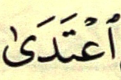 ٱعْتَدَىٰ